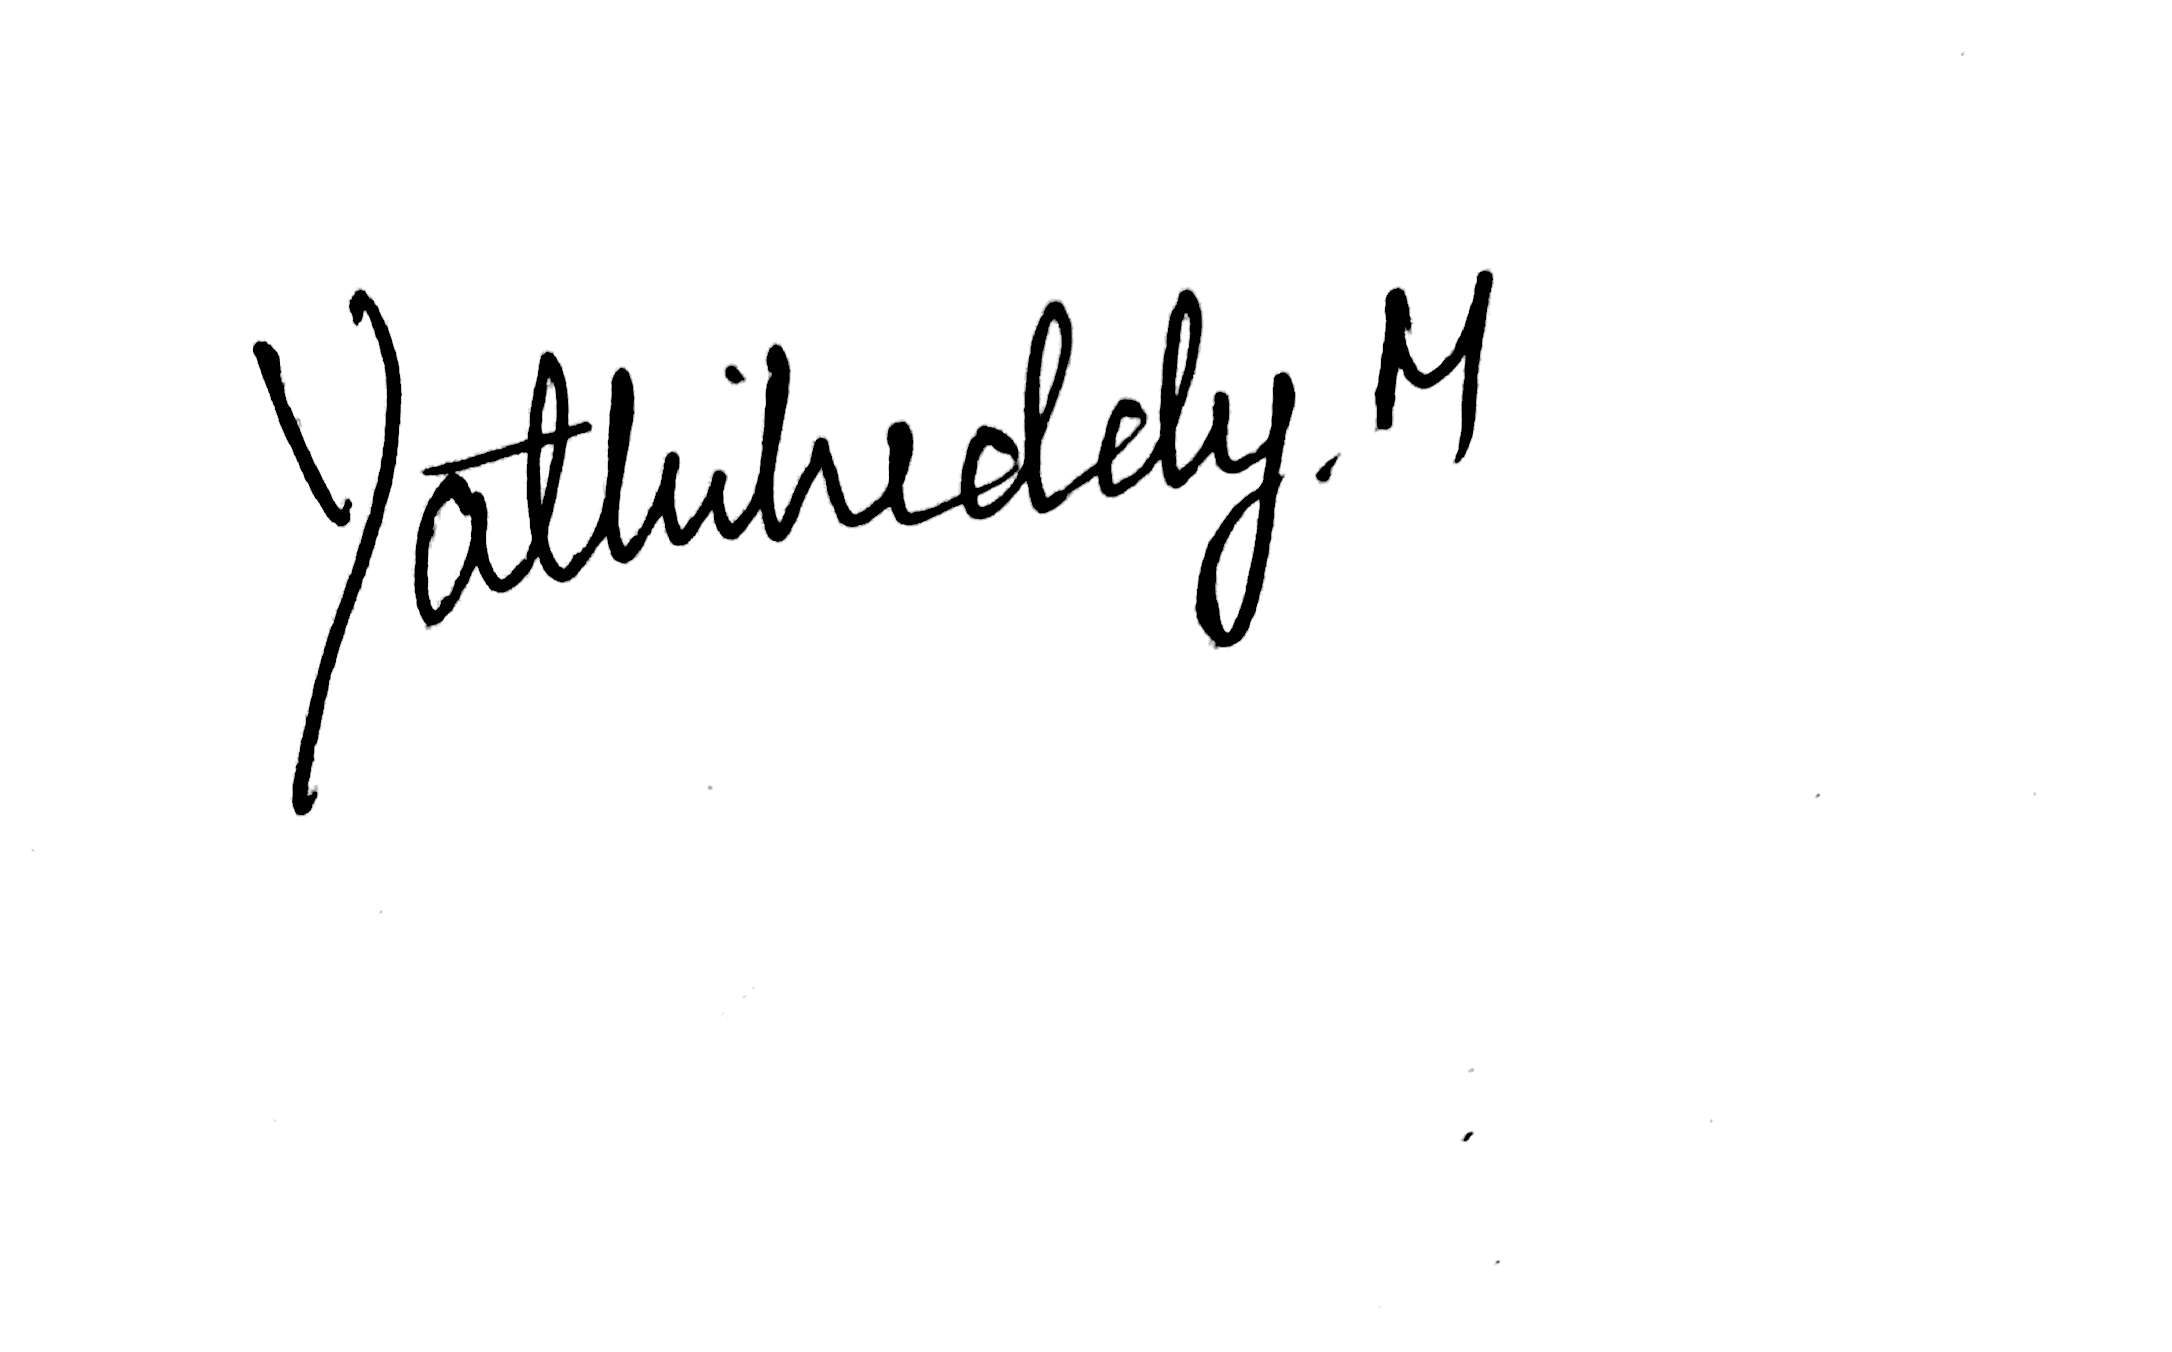 Yathihreddy. M